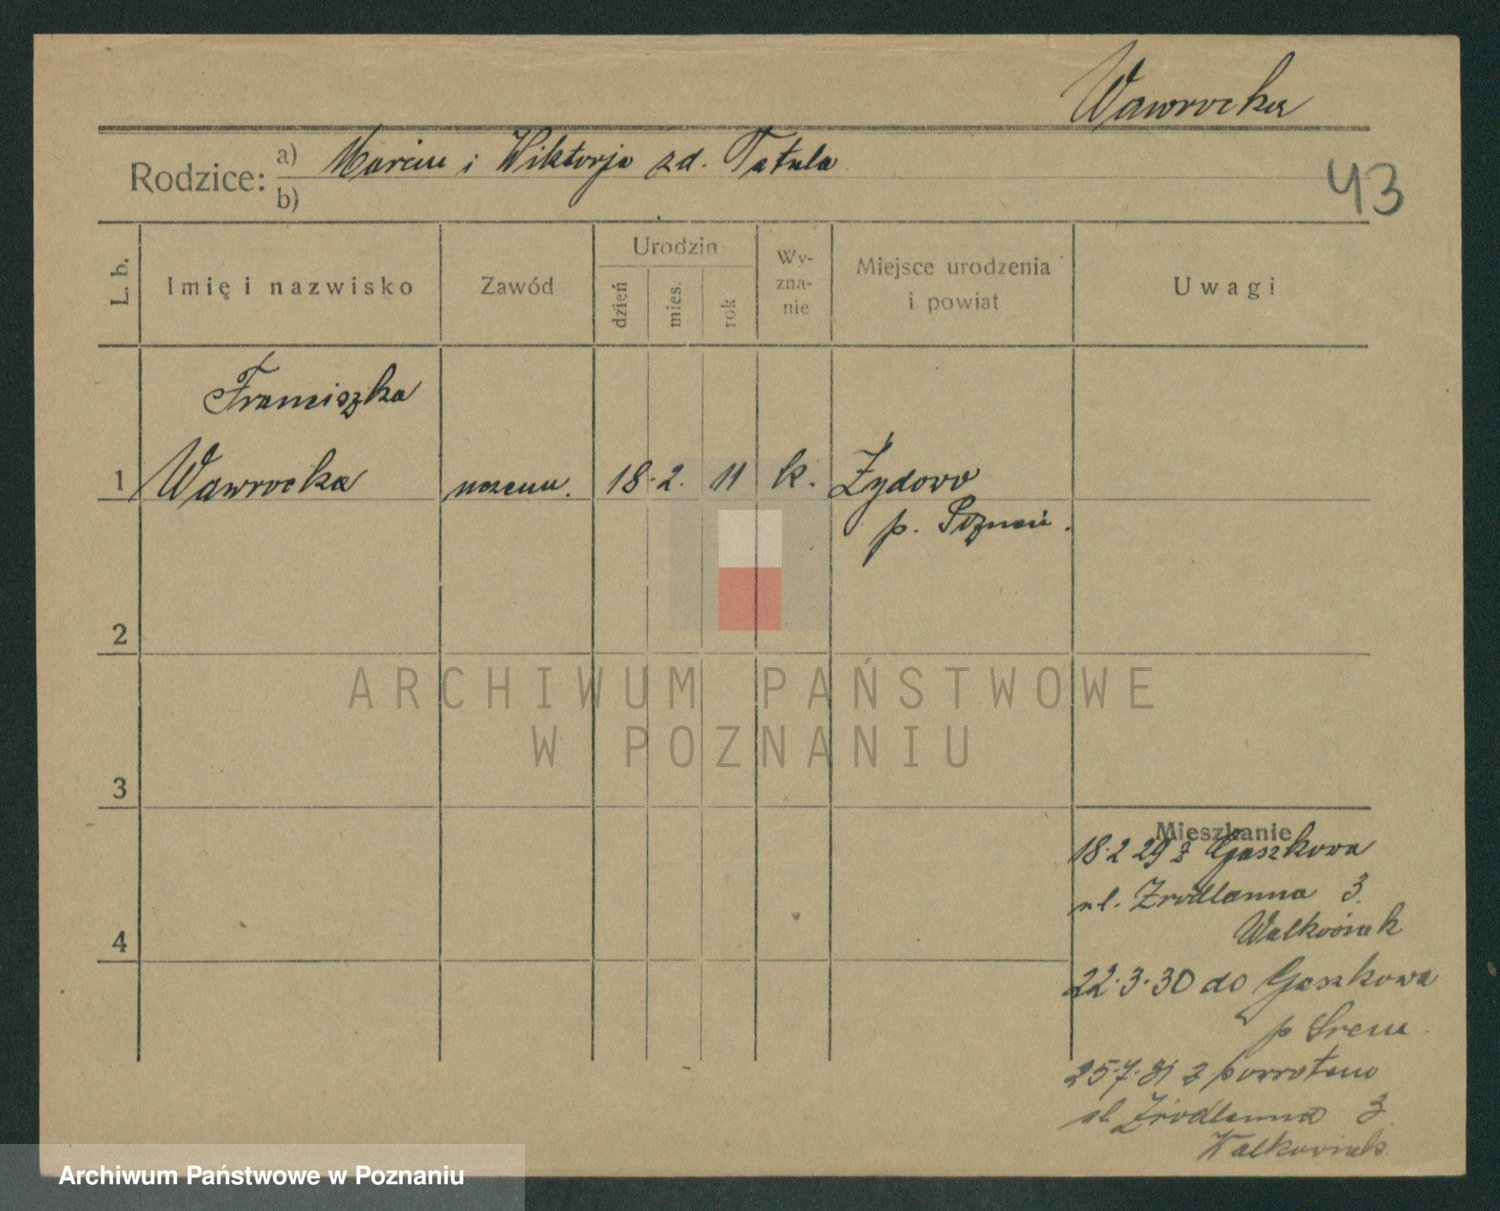 Wawrocka
Rodzice: a) Marcin i Wiktorja zd. Tatula
b)
43
L. b.
Imię i nazwisko
Zawód
Urodzin
dzień
mies.
rok
Wy-
zna-
nie
Miejsce urodzenia
i powiat
Uwagi
Franciszka
1 Wawrocka 18. 2. 11 k. Żydowo
p. Poznań.
2
3
4
ARCHIWUM PAŃSTWOWE
W POZNANIU
Mieszkanie
18.2 29 z Gaszkowa
ul. Zrodlanna 3.
Walkowiak
22.3.30 do Gaszkowa
p Srem
25.7.31 z powrotem
ul Źrodlanna 3.
Walkowiak
Archiwum Państwowe w Poznaniu